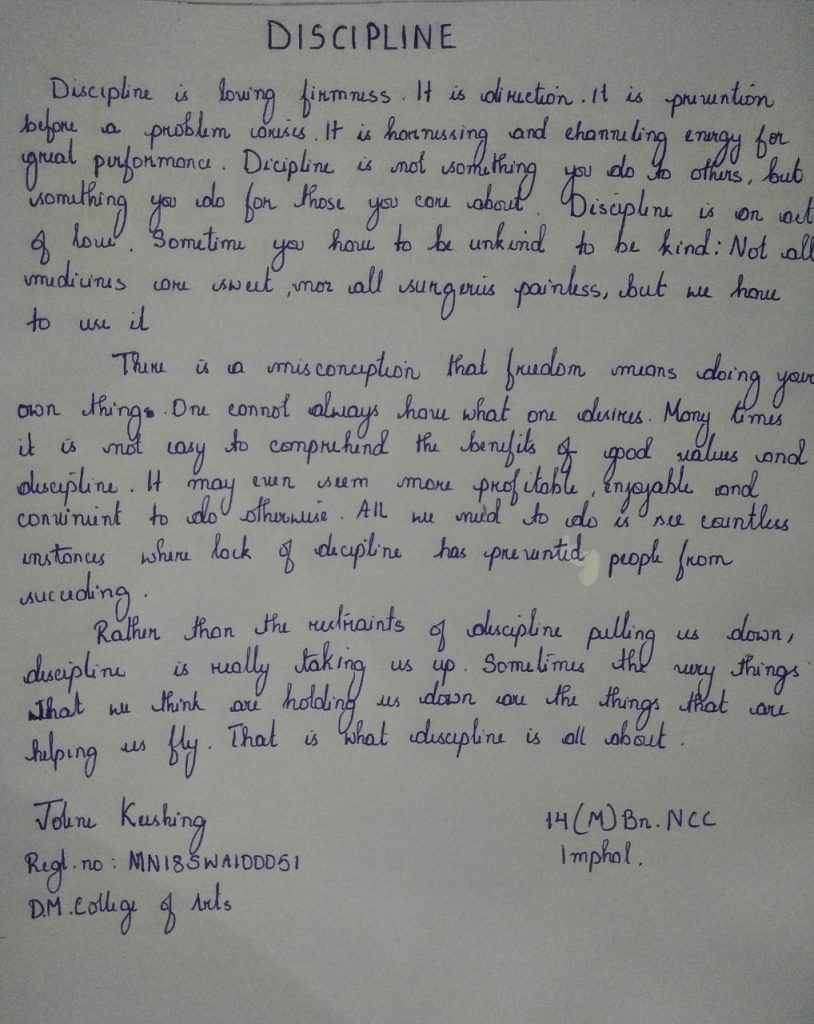 DISCIPLINE
Discipline is loving firmness. It is direction. It is prevention
before a problem arises. It is harnessing and channeling energy for
great performance. Dicipline is not something you do to others, but
something you do for those you care about. Discipline is an act
of love. Sometime you have to be unkind to be kind: Not all
medicines are sweet, nor all surgeries painless, but we have
to use it
There is a misconception that freedom means doing your
own things. One cannot always have what one desires. Many times
it is not easy to comprehend the benefits of good values and
discipline. It may even seem more profitable, enjoyable and
convinient to do otherwise. All we need to do is see countless
instances where lack of dicipline has prevented people from
succeding.
Rather than the restraints of discipline pulling us down,
discipline is really taking us up. Sometimes the very things
that we think are holding us down are the things that are
helping us fly. That is what discipline is all about.
Keishing 14(M)Bn. NCC
Regl. no: MN18SWA100051 Imphal.
D.M. College of Arts